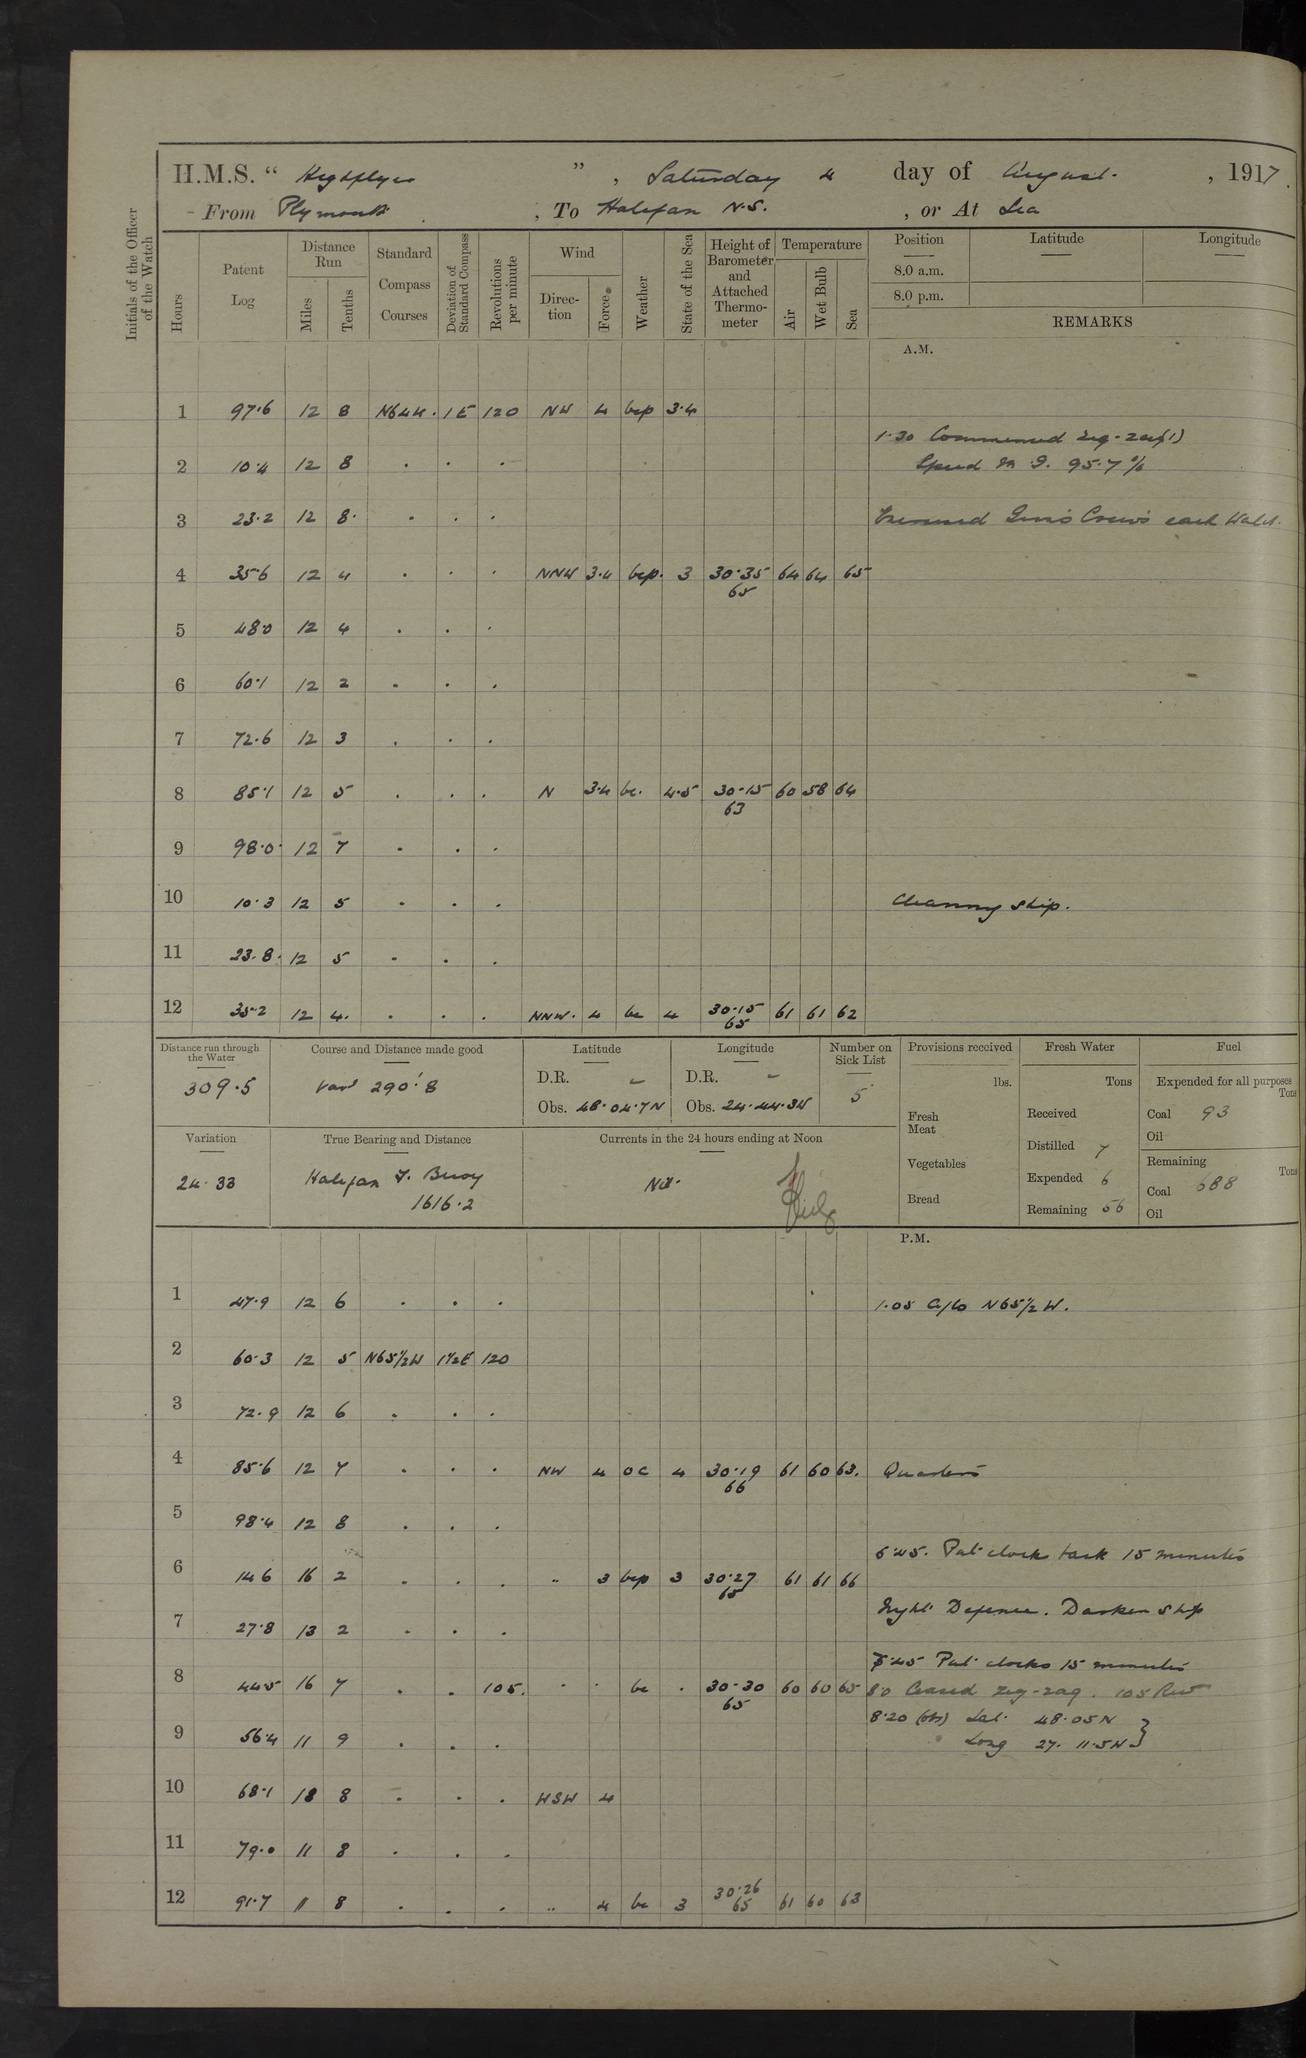 H.M.S. “ Highflyer ” , Saturday 4 day of August. , 1917.
From Plymouth , To Halifax N.S. , or At Sea
Initials of the Officer of the Watch
Hours Patent Log Distance Run Miles Tenths Standard Compass Courses Deviation of Standard Compass Revolutions per minute Wind Direction Force Weather State of the Sea Height of Barometer and Attached Thermometer Temperature Air Wet Bulb Sea Position 8.0 a.m. 8.0 p.m. Latitude Longitude
REMARKS
A.M.
1 97.6 12 8 N64W. 1E 120 NW 4 bcp 3.4
1.30 Commenced Zig-zag(1)
2 10.4 12 8 . . . Speed M.G. 95.7%
3 23.2 12 8. . . . Exercised Guns Crews each Watch.
4 35.6 12 4 . . . NNW 3.4 bcp. 3 30.35 64 64 65
65
5 48.0 12 4 . . .
6 60.1 12 2 . . .
7 72.6 12 3 . . .
8 85.1 12 5 . . . N 3.4 bc. 4.5 30.15 60 58 64
63
9 98.0 12 7 . . .
10 10.3 12 5 . . . Cleaning Ship.
11 23.8 12 5 . . .
12 35.2 12 4. . . . NNW. 4 bc 4 30.15 61 61 62
65
Distance run through the Water Course and Distance made good Latitude Longitude Number on Sick List Provisions received Fresh Water Fuel
309.5 Var' 290'.8 D.R. – D.R. – 5 lbs. Tons Expended for all purposes Tons
Obs. 48.04.7N Obs. 24.44.3W Fresh Meat Received Coal 93
Oil
Variation True Bearing and Distance Currents in the 24 hours ending at Noon Distilled 7 Remaining Tons
24.33 Halifax F. Buoy Nil. Vegetables Expended 6 Coal 688
1616.2 Bread Remaining 56 Oil
P.M.
1 47.9 12 6 . . . 1.05 A/Co N65½W.
2 60.3 12 5 N65½W 1½E 120
3 72.9 12 6 . . .
4 85.6 12 7 . . . NW 4 oc 4 30.19 61 60 63. Quarters
66
5 98.4 12 8 . . .
5.45. Put clocks back 15 minutes
6 14 6 16 2 . . . " 3 bcp 3 30.27 61 61 66
65
Night Defence. Darken Ship
7 27.8 13 2 . . .
7.45 Put clocks 15 minutes
8 44.5 16 7 . . 105. . . bc . 30.30 60 60 65 8.0 Ceased zig-zag. 105 Rev
65
8.20 (obs) Lat. 48.05N
9 56.4 11 9 . . . Long 27. 11.5W }
10 68.1 18 8 . . . WSW 4
11 79.0 11 8 . . .
12 91.7 11 8 . . . " 4 bc 3 30.26 61 60 63
65